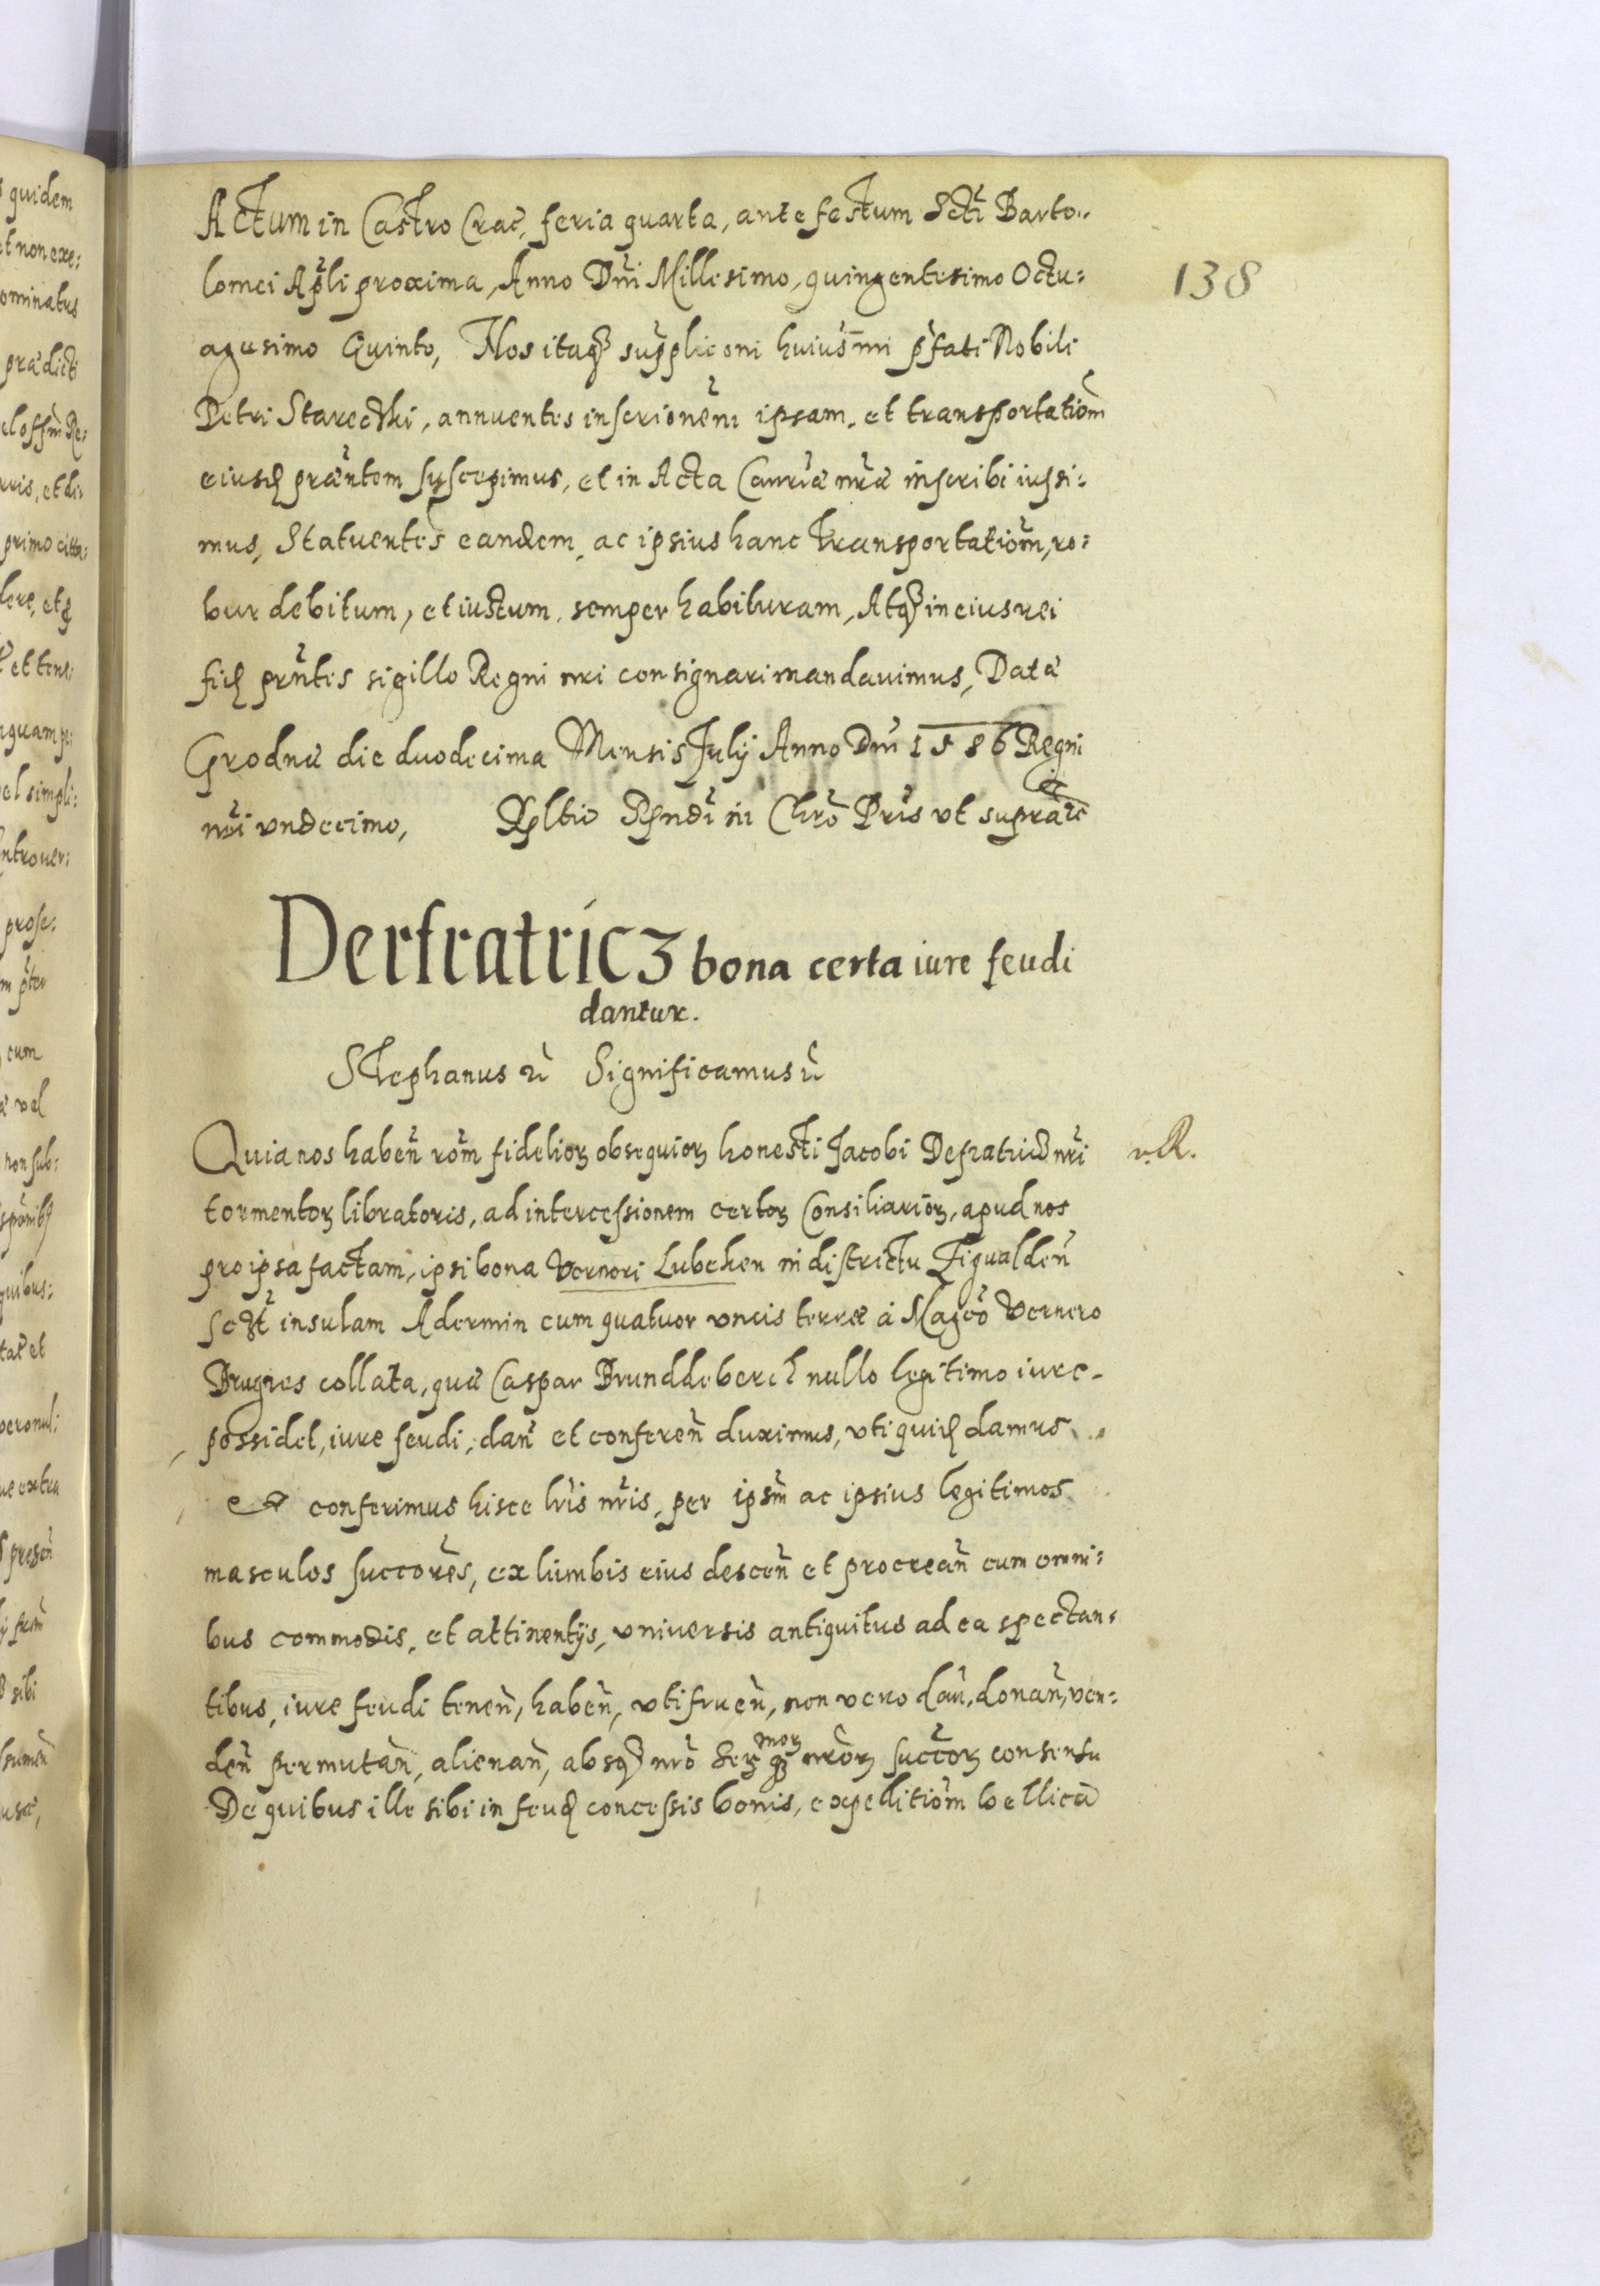 Actum in Castro Crac, feria quarta, ante festum Scti Barto..
lomei Apli proxima, Anno Dni Millesimo, quingentesimo Octu:
138
agesimo Quinto, Nos itaq3 suppliconi huiusmi pfati Nobili
Petri Starecski, annuentes inscrionem ipsam, et transportatiom
eiusq præntem suscepimus, et in Acta Canriæ nræ inscribi iussi:
mus, Statuentes eandem, ac ipsius hanc transportatiom, ro:
bur debitum, et iustum, semper habituram, Atq3 in eius rei
fid prntes sigillo Regni nri consignari mandavimus, Datæ
Grodnæ die duodecima Mensis July Anno Dni 1586 Regni
nri undecimo, Rndi in Chro Pris ut supra
Derfratricz bona certa iure feudi
dantur.
Stephanus Significamus
Quia nos haben rom fidelior obsequior honesti Jacobi nri
v.R.
tormentor libratoris, ad intercessionem certor Consiliarior, apud nos
pro ipsa factam, ipsi bona Verneri Lubchen in districtu
insulam Adermin cum quatuor uncis terræ a Magco Vernero
collata, quæ Caspar nullo legitimo iure
possidet, iure feudi, dan et conferen duximus, uti quid damus
et conferimus hisce lris nris, per ipsm ac ipsius legitimos
masculos succores, ex lumbis eius descen et procrean cum omni:
bus commodis, et attinentijs, universis antiquitus ad ea spectan:
tibus, iure feudi tenen, haben, utifruen, non vero dan, donan, ven:
den permutan, alienan, absq3 nro Ser mor nror succor consensu
De quibus ille sibi in feud concessis bonis, expeditiom bellica